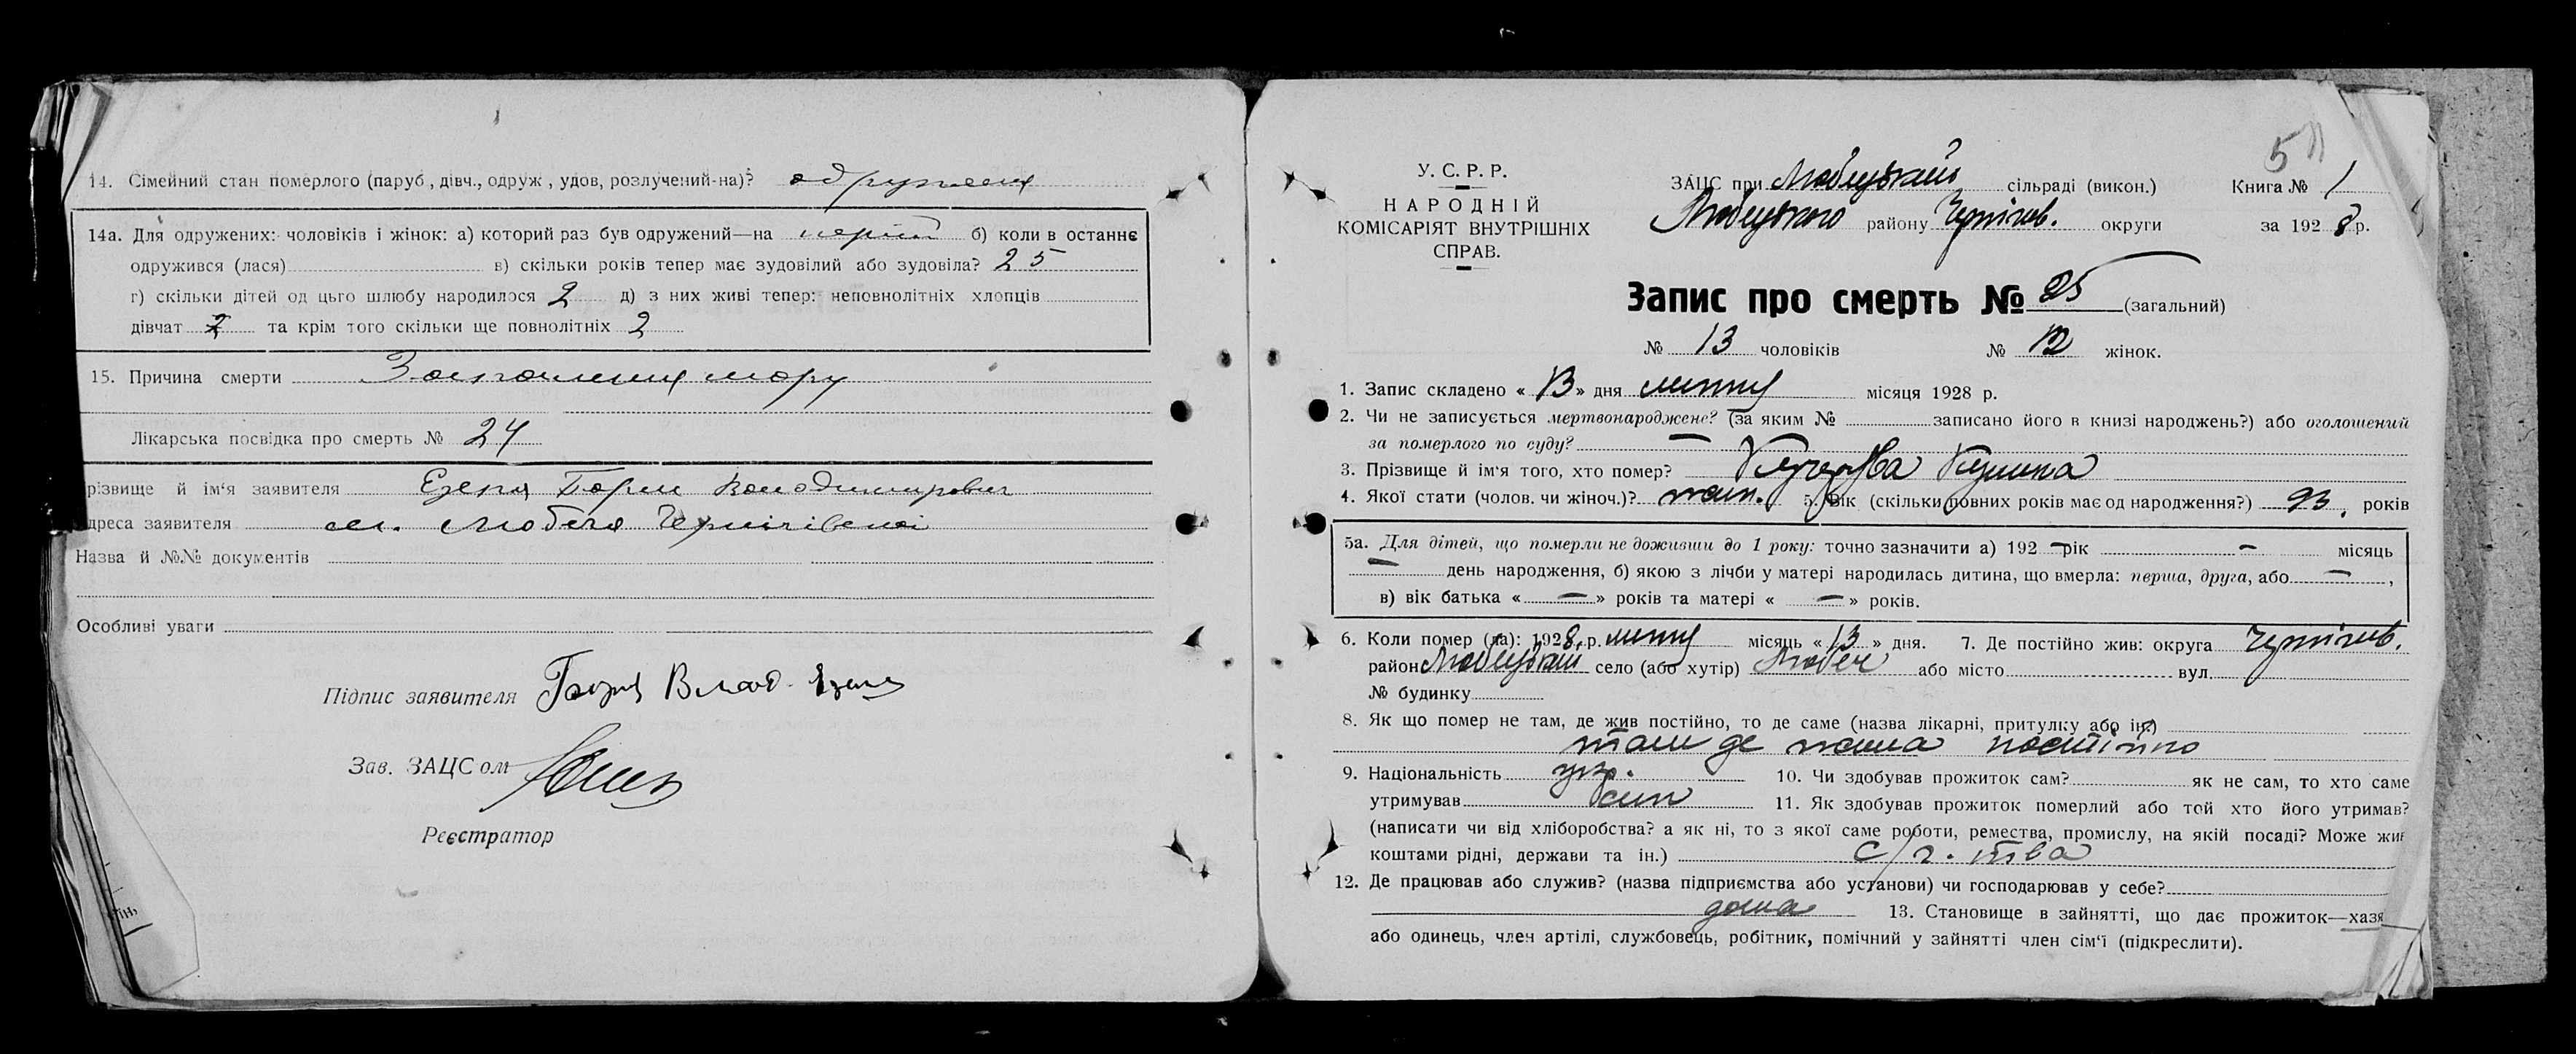 14. Сімейний стан померлого (паруб, дівч., одруж, удов, розлучений-на)? одружена
14а. Для одружених: чоловіків і жінок: а) который раз був одружений—на перший б) коли в останнє
одружився (лася) в) скільки років тепер має зудовілий або зудовіла? 25
г) скільки дітей од цього шлюбу народилося 2 д) з них живі тепер: неповнолітніх хлопців
дівчат та крім того скільки ще повнолітніх 2
15. Причина смерти
Лікарська посвідка про смерть № 24
різвище й ім'я заявителя Володимирович
дреса заявителя м. Любеча Чернігівської
Назва й №№ документів
Особливі уваги
Підпис заявителя Влад.
Зав. ЗАЦС ом
Реєстратор
ін,
5
У. С. Р. Р.
НАРОДНІЙ
КОМІСАРІЯТ ВНУТРІШНІХ
СПРАВ.
ЗАЦС при Любецький сільраді (викон.) Книга № 1
Любецького району Чернігов. округи за 1928 р.
Запис про смерть № 25 (загальний)
№ 13 чоловіків № 12 жінок.
1. Запис складено « 13 » дня лютня місяця 1928 р.
2. Чи не записується мертвонароджене? (за яким № записано його в книзі народжень?) або оголошений
за померлого по суду? —
3. Прізвище й ім'я того, хто помер?
4. Якої стати (чолов. чи жіноч.)? жін. 5. Вік (скільки повних років має од народження?) 93. років
5а. Для дітей, що померли не доживши до 1 року: точно зазначити а) 192 — рік — місяць
— день народження, б) якою з лічби у матері народилась дитина, що вмерла: перша, друга, або — ,
в) вік батька « — » років та матері « — » років.
6. Коли помер (ла): 1928 р. лютня місяць « 13 » дня. 7. Де постійно жив: округа Чернігов.
район Любецький село (або хутір) Любеч або місто вул.
№ будинку
8. Як що помер не там, де жив постійно, то де саме (назва лікарні, притулку або ін.)
там де жила постійно
9. Національність укр. 10. Чи здобував прожиток сам? як не сам, то хто саме
утримував син 11. Як здобував прожиток померлий або той хто його утримав?
(написати чи від хліборобства? а як ні, то з якої саме роботи, ремества, промислу, на якій посаді? Може жив
коштами рідні, держави та ін.) с/г. тва
12. Де працював або служив? (назва підприємства або установи) чи господарював у себе?
дома 13. Становище в зайнятті, що дає прожиток—хазя
або одинець, член артілі, службовець, робітник, помічний у зайнятті член сім'ї (підкреслити).